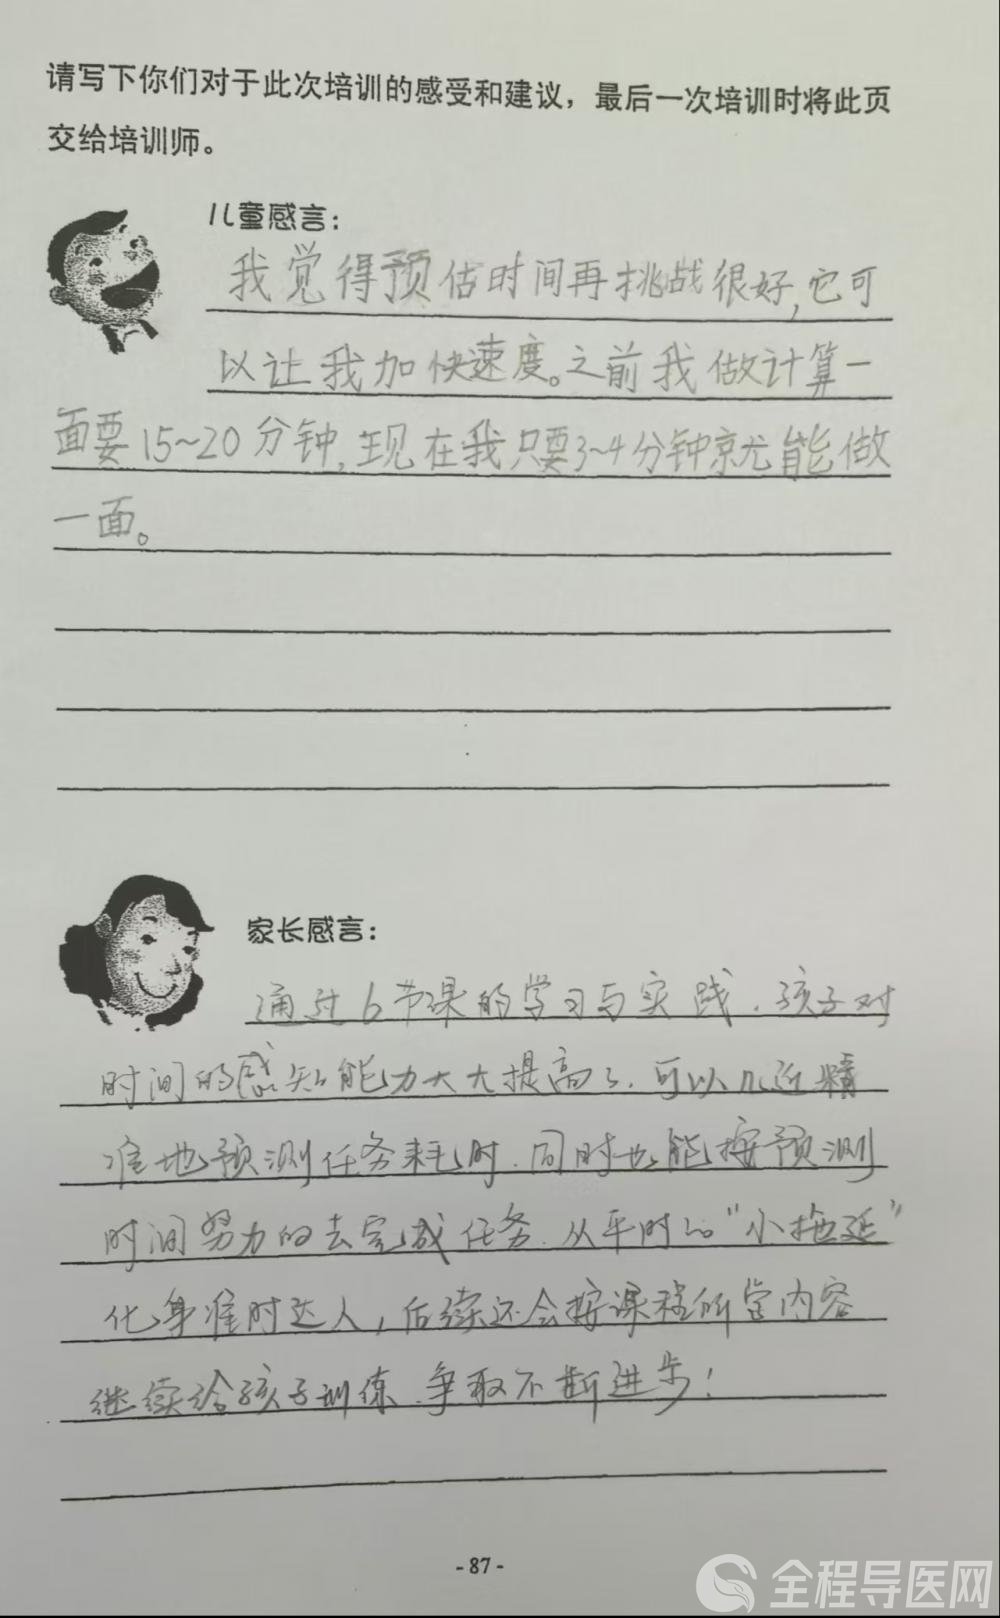 请写下你们对于此次培训的感受和建议，最后一次培训时将此页
交给培训师。
儿童感言：
我觉得预估时间再挑战很好，它可
以让我加快速度。之前我做计算一
面要15~20分钟，现在我只要3~4分钟就能做
一面。
家长感言：
通过6节课的学习与实践，孩子对
时间的感知能力大大提高了，可以几近精
准地预测任务耗时，同时也能按预测
时间努力的去完成任务，从平时的“小拖延”
化身准时达人，后续还会按课程所学内容
继续给孩子训练，争取不断进步！
- 87 -
全程导医网